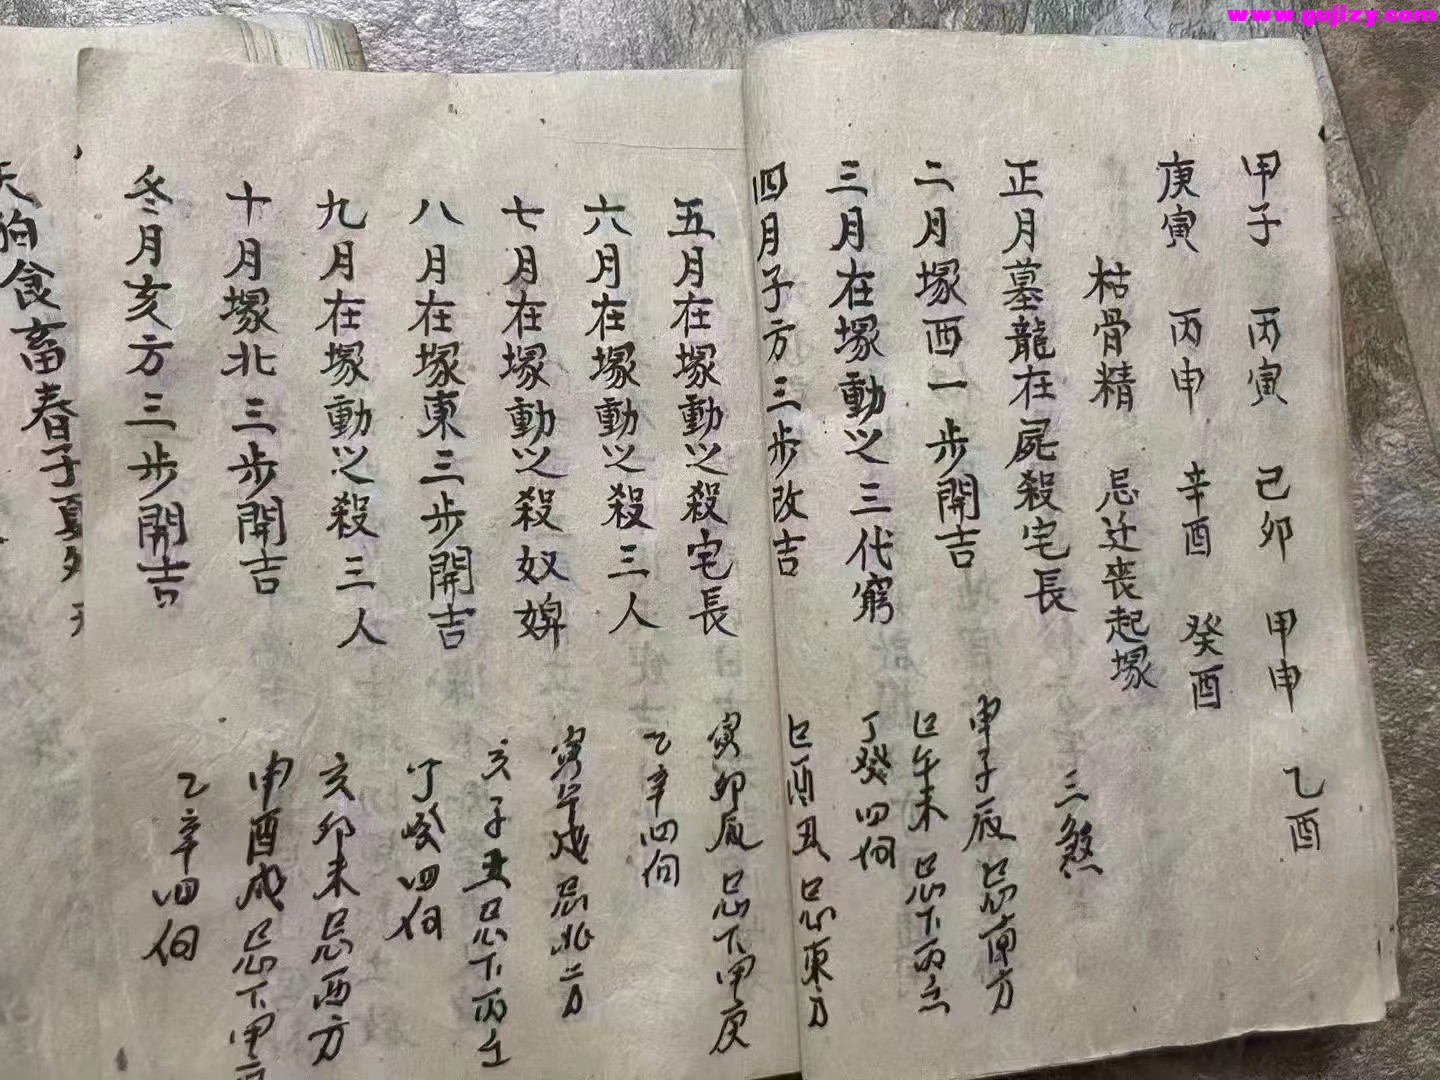 www.gujizy.com
甲子 丙寅 己卯 甲申 乙酉
庚寅 丙申 辛酉 癸酉
枯骨精 忌迁丧起塚
三煞
正月墓龍在屍殺宅長
申子辰忌南方
二月塚西一步開吉
巳午未忌下丙壬
三月在塚動之三代窮
丁癸四向
四月子方三步改吉
巳酉丑忌東方
五月在塚動之殺宅長
寅卯辰忌下甲庚
六月在塚動之殺三人
乙辛四向
七月在塚動之殺奴婢
寅午戌忌北方
八月在塚東三步開吉
亥子丑忌下丙壬
九月在塚動之殺三人
丁癸四向
十月塚北三步開吉
亥卯未忌西方
冬月亥方三步開吉
申酉戌忌下甲庚
乙辛四向
天狗食畜春子夏